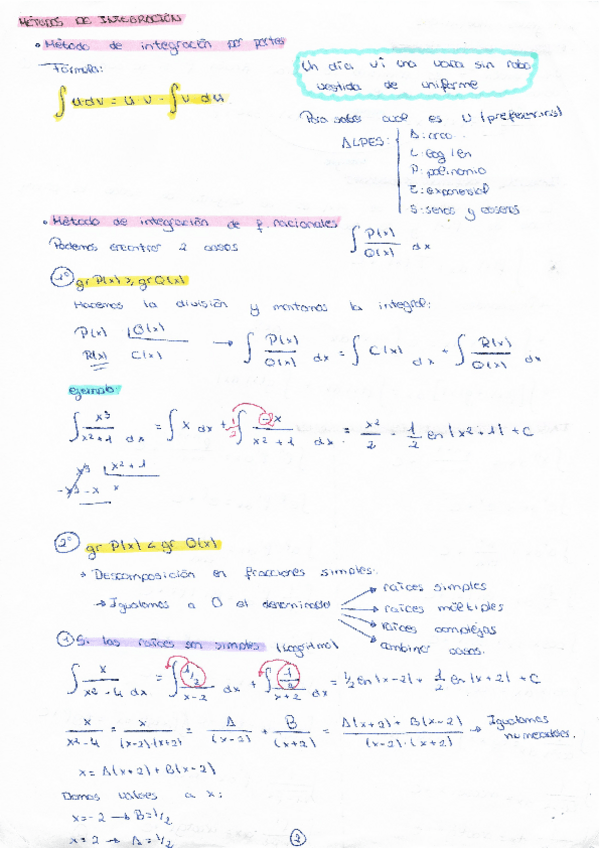 MÉTODOS DE INTEGRACIÓN
• Método de integración por partes
Fórmula:
∫ u dv = u v - ∫ v du
Un día vi una vaca sin rabo
vestida de uniforme
Para saber cual es U (preferencias)
ALPES:
A: arco
L: log / ln
P: polinomio
E: exponencial
S: senos y cosenos
• Método de integración de f. racionales
Podemos encontrar 2 casos
∫ P(x)/Q(x) dx
1º gr P(x) ≥ gr Q(x)
Hacemos la división y montamos la integral:
P(x) |Q(x)
R(x) C(x)
→ ∫ P(x)/Q(x) dx = ∫ C(x) dx + ∫ R(x)/Q(x) dx
ejemplo:
∫ x³/(x²+1) dx = ∫ x dx + 1/2 ∫ -2x/(x²+1) dx = x²/2 - 1/2 ln |x²+1| + C
x³ |x²+1
-x³-x x
2º gr P(x) < gr Q(x)
→ Descomposición en fracciones simples.
→ Igualamos a 0 el denominador
→ raíces simples
→ raíces múltiples
→ raíces complejas
→ combinar casos.
① Si las raíces son simples (Logaritmo)
∫ x/(x²-4) dx = ∫ (1/2)/(x-2) dx + ∫ (1/2)/(x+2) dx = 1/2 ln |x-2| + 1/2 ln |x+2| + C
x/(x²-4) = x/((x-2)·(x+2)) = A/(x-2) + B/(x+2) = (A(x+2)+B(x-2))/((x-2)·(x+2)) → Igualamos numeradores.
x = A(x+2) + B(x-2)
Damos valores a x:
x=-2 → B=1/2
x=2 → A=1/2
2